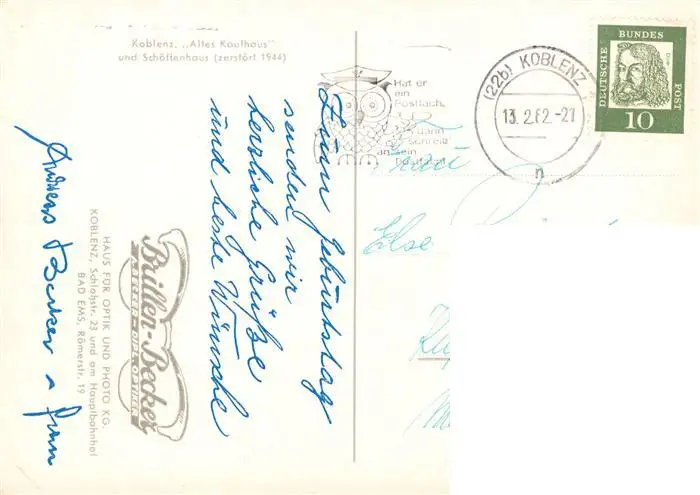 Koblenz, „Altes Kaufhaus"
und Schöffenhaus (zerstört 1944)
Zum Geburtstag
senden wir
herzliche Grüße
und beste Wünsche
Andreas Becker
Brillen-Becker
BECKER DIPL. OPTIKER
HAUS FÜR OPTIK UND PHOTO KG.
KOBLENZ, Schloßstr. 23 und am Hauptbahnhof
BAD EMS, Römerstr. 19
Hat er
ein
Postfach,
dann
schreib
an sein
Postfach!
(22b) KOBLENZ
13.2.62.-21
n
DEUTSCHE BUNDES POST
Dürer
10
Frau
Else